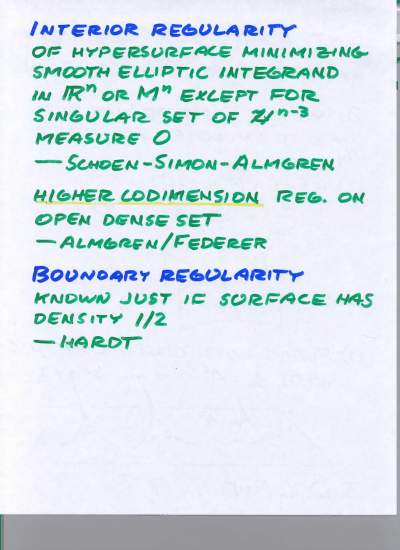 INTERIOR REGULARITY
OF HYPERSURFACE MINIMIZING
SMOOTH ELLIPTIC INTEGRAND
IN ℝⁿ OR Mⁿ EXCEPT FOR
SINGULAR SET OF ℋⁿ⁻³
MEASURE 0
— SCHOEN-SIMON-ALMGREN
HIGHER CODIMENSION REG. ON
OPEN DENSE SET
— ALMGREN/FEDERER
BOUNDARY REGULARITY
KNOWN JUST IF SURFACE HAS
DENSITY 1/2
— HARDT